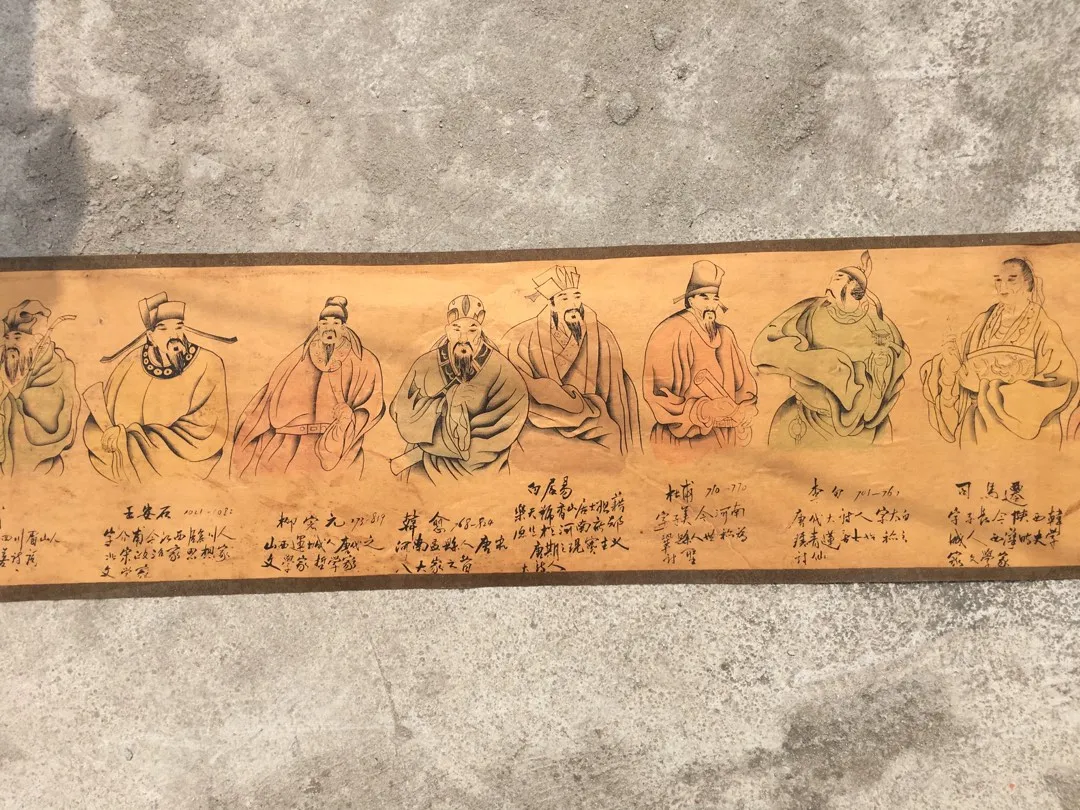 司马遷
字子长今陕西韩
城人西漢时史学
家文学家
李白 701-76
唐代大詩人字太白
詩仙
杜甫 710-770
字子美今河南
鞏縣人世称为
詩聖
白居易
樂天號香山居士祖籍
河南
唐期之現实主义
大詩人
韓愈 768-824
河南孟縣人唐宋
八大家之首
柳宗元 773-819
山西運城人唐代之
文学家哲学家
王安石 1021-108
字介甫今江西臨川人
北宋政治家思想家
文学家
四川眉山人